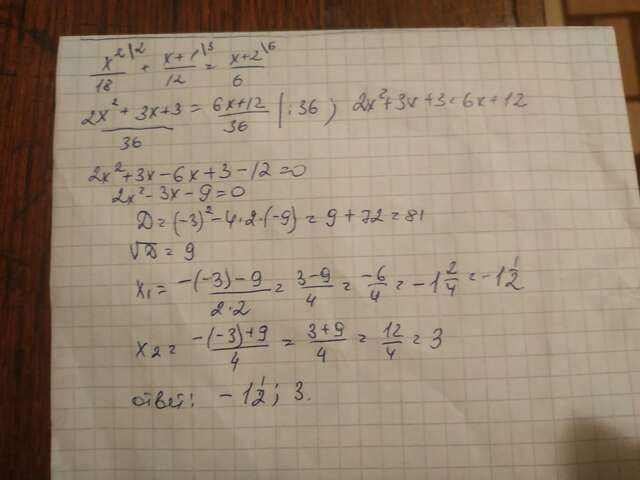 x²\2/18 + x+1\3/12 = x+2\6/6
2x²+3x+3/36 = 6x+12/36 |:36 ; 2x²+3x+3=6x+12
2x²+3x-6x+3-12=0
2x²-3x-9=0
D=(-3)²-4·2·(-9)=9+72=81
√D=9
x₁= -(-3)-9/2·2 = 3-9/4 = -6/4 = -1 2/4 = -1 1/2
x₂= -(-3)+9/4 = 3+9/4 = 12/4 = 3
ответ: -1 1/2; 3.